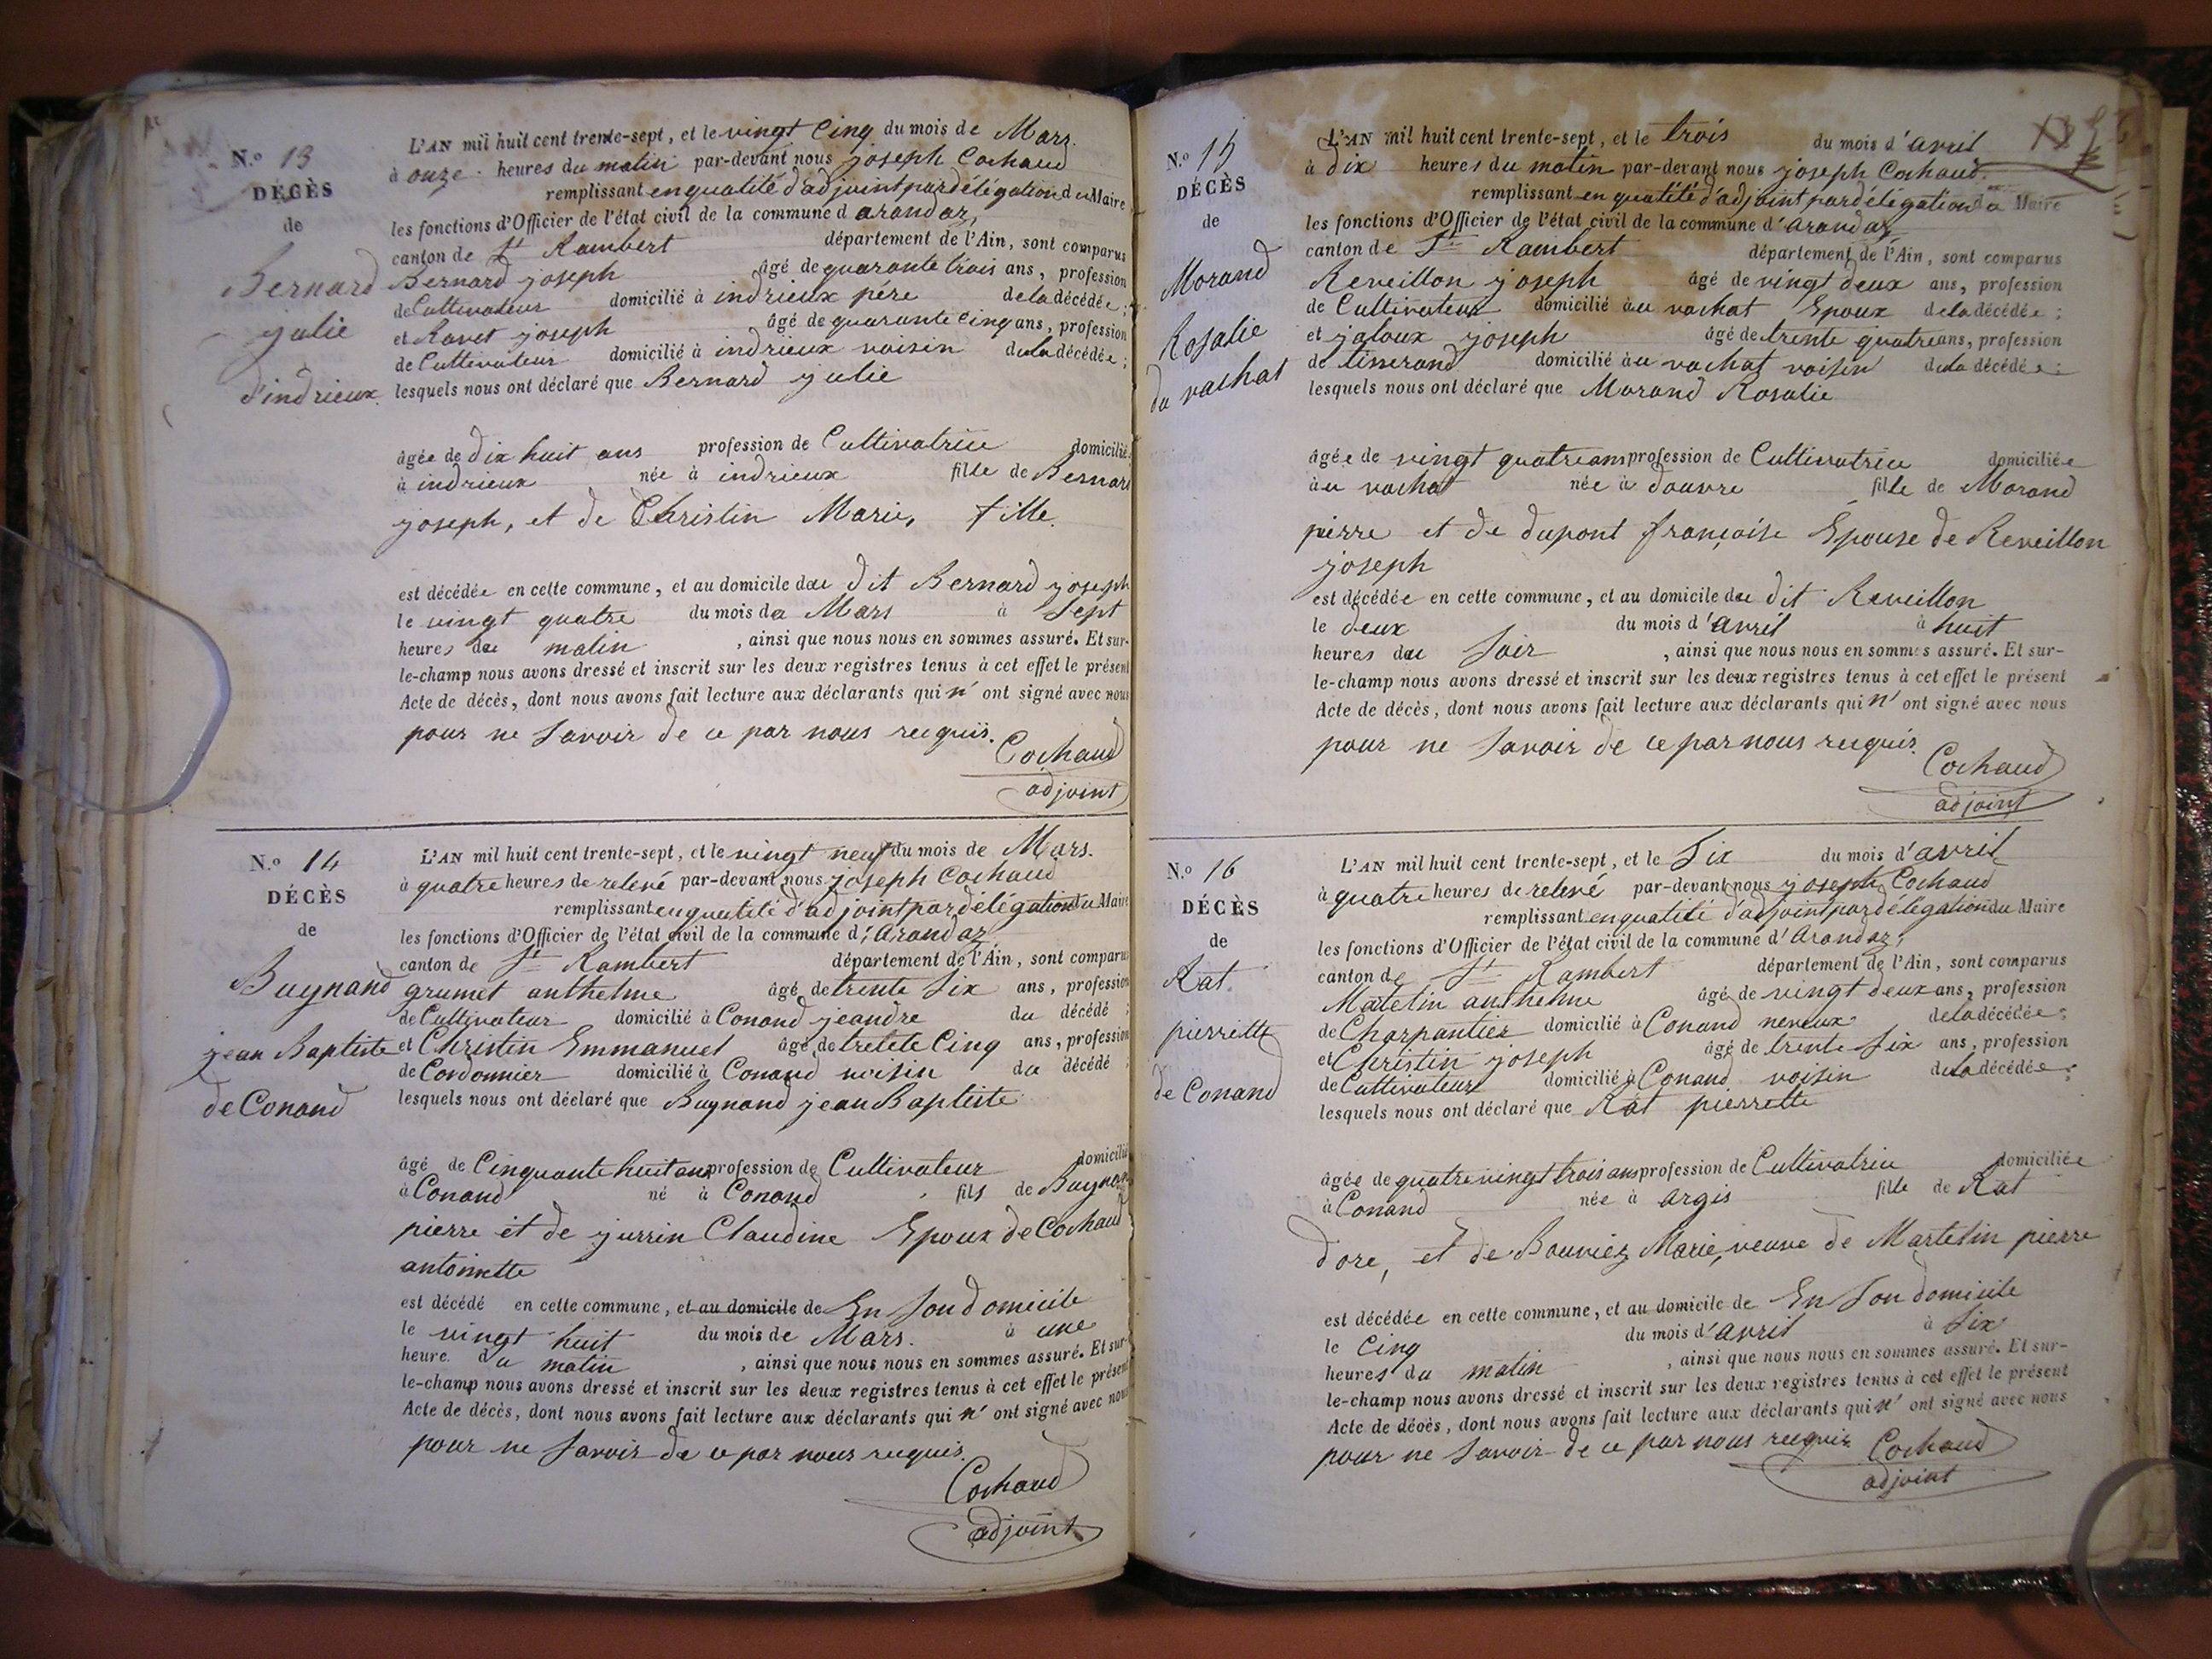 N.º 13
DÉCÈS
de
Bernard
julie
d'indrieux
L'AN mil huit cent trente-sept, et le vingt Cinq du mois de Mars.
à onze heures du matin par-devant nous joseph Cochaud
remplissant en qualité d'adjoint par délégation du Maire
les fonctions d'Officier de l'état civil de la commune d arandaz,
canton de St Rambert département de l'Ain, sont comparus
Bernard joseph âgé de quarante trois ans, profession
de Cultivateur domicilié à indrieux père de la décédée;
et Ravet joseph âgé de quarante cinq ans, profession
de Cultivateur domicilié à indrieux voisin de la décédée;
lesquels nous ont déclaré que Bernard julie
âgée de dix huit ans profession de Cultivatrice domiciliée
à indrieux née à indrieux fille de Bernard
joseph, et de Christin Marie, fille.
est décédée en cette commune, et au domicile du dit Bernard joseph
le vingt quatre du mois de Mars à Sept
heures du matin, ainsi que nous nous en sommes assuré. Et sur-
le-champ nous avons dressé et inscrit sur les deux registres tenus à cet effet le présent
Acte de décès, dont nous avons fait lecture aux déclarants qui n' ont signé avec nous
pour ne Savoir de ce par nous requis.
Cochaud
adjoint
N.º 14
DÉCÈS
de
Buynand
jean Baptiste
de Conand
L'AN mil huit cent trente-sept, et le vingt neuf du mois de Mars.
à quatre heures de relevé par-devant nous joseph Cochaud
remplissant en qualité d'adjoint par délégation du Maire
les fonctions d'Officier de l'état civil de la commune d'arandaz
canton de St Rambert département de l'Ain, sont comparus
grumet anthelme âgé de trente Six ans, profession
de Cultivateur domicilié à Conand jeandre du décédé;
et Christin Emmanuel âgé de tretete Cinq ans, profession
de Cordonnier domicilié à Conand voisin du décédé
lesquels nous ont déclaré que Buynand jean Baptiste
âgé de Cinquante huit ans profession de Cultivateur domicilié
à Conand né à Conand fils de Buynand
pierre et de jurrin Claudine Epoux de Cochaud
antoinette
est décédé en cette commune, et au domicile de En Son domicile
le vingt huit du mois de Mars. à une
heure du matin, ainsi que nous nous en sommes assuré. Et sur-
le-champ nous avons dressé et inscrit sur les deux registres tenus à cet effet le présent
Acte de décès, dont nous avons fait lecture aux déclarants qui n' ont signé avec nous
pour ne Savoir de ce par nous requis.
Cochaud
adjoint
N.º 15
DÉCÈS
de
Morand
Rosalie
du vachat
L'AN mil huit cent trente-sept, et le trois du mois d'avril
à dix heures du matin par-devant nous joseph Cochaud.
remplissant en qualité d'adjoint par délégation du Maire
les fonctions d'Officier de l'état civil de la commune d'arandaz
canton de St Rambert département de l'Ain, sont comparus
Reveillon joseph âgé de vingt deux ans, profession
de Cultivateur domicilié au vachat Epoux de la décédée;
et jaloux joseph âgé de trente quatre ans, profession
de tisserand domicilié au vachat voisin de la décédée;
lesquels nous ont déclaré que Morand Rosalie
âgée de vingt quatre ans profession de Cultivatrice domiciliée
au vachat née à douvre fille de Morand
pierre et de dupont françoise Epouse de Reveillon
joseph
est décédée en cette commune, et au domicile du dit Reveillon
le deux du mois d'avril à huit
heures du Soir, ainsi que nous nous en sommes assuré. Et sur-
le-champ nous avons dressé et inscrit sur les deux registres tenus à cet effet le présent
Acte de décès, dont nous avons fait lecture aux déclarants qui n' ont signé avec nous
pour ne Savoir de ce par nous requis.
Cochaud
adjoint
N.º 16
DÉCÈS
de
Rat
pierrette
de Conand
L'AN mil huit cent trente-sept, et le Six du mois d'avril
à quatre heures de relevé par-devant nous joseph Cochaud
remplissant en qualité d'adjoint par délégation du Maire
les fonctions d'Officier de l'état civil de la commune d'arandaz,
canton de St Rambert département de l'Ain, sont comparus
Matelin anthelme âgé de vingt deux ans, profession
de Charpantier domicilié à Conand neveux de la décédée;
et Christin joseph âgé de trente Six ans, profession
de Cultivateur domicilié à Conand voisin de la décédée;
lesquels nous ont déclaré que Rat pierrette
âgée de quatre vingt trois ans profession de Cultivatrice domiciliée
à Conand née à argis fille de Rat
dore, et de Bouviez Marie, veuve de Martelin pierre
est décédée en cette commune, et au domicile de En Son domicile
le Cinq du mois d'avril à Six
heures du matin, ainsi que nous nous en sommes assuré. Et sur-
le-champ nous avons dressé et inscrit sur les deux registres tenus à cet effet le présent
Acte de décès, dont nous avons fait lecture aux déclarants qui n' ont signé avec nous
pour ne Savoir de ce par nous requis Cochaud
adjoint